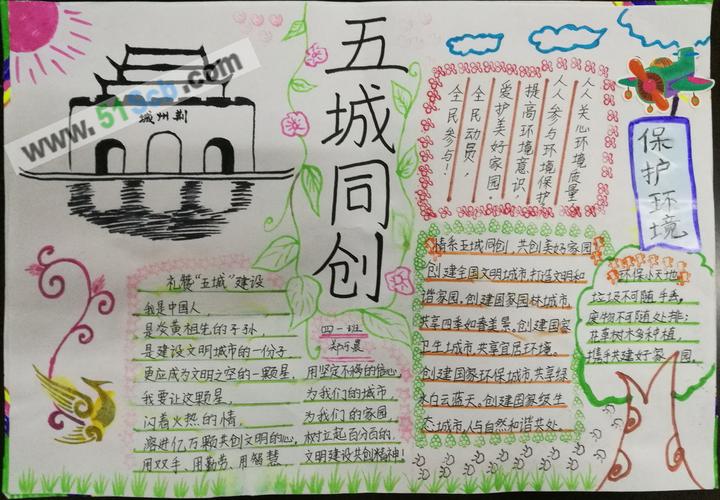 五城同创
荆州城
人人关心环境质量
人人参与环境保护
提高环境意识
爱护美好家园!
全民动员,
全民参与!
保护环境
礼赞“五城”建设
我是中国人,
是炎黄相生的子孙
是建设文明城市的一份子
更应成为文明之空的一颗星,
我要让这颗星,
闪着火热的情,
溶进亿万颗共创文明的心,
用双手、用勤劳、用智慧
四一班
用坚定不移的信心,
为我们的城市,
为我们的家园,
树立起百分百的,
文明建设共创精神!
情系五城同创,共创美好家园
创建全国文明城市,打造文明和
谐家园。创建国家园林城市,
共享四季如春美景。创建国家
卫生城市,共享宜居环境。
创建国家环保城市,共享绿
水白云蓝天。创建国家级生
态城市,人与自然和谐共处。
环保小天地
垃圾不可随手丢,
废物不可随处排;
花草树木多种植,
携手共建好家园。